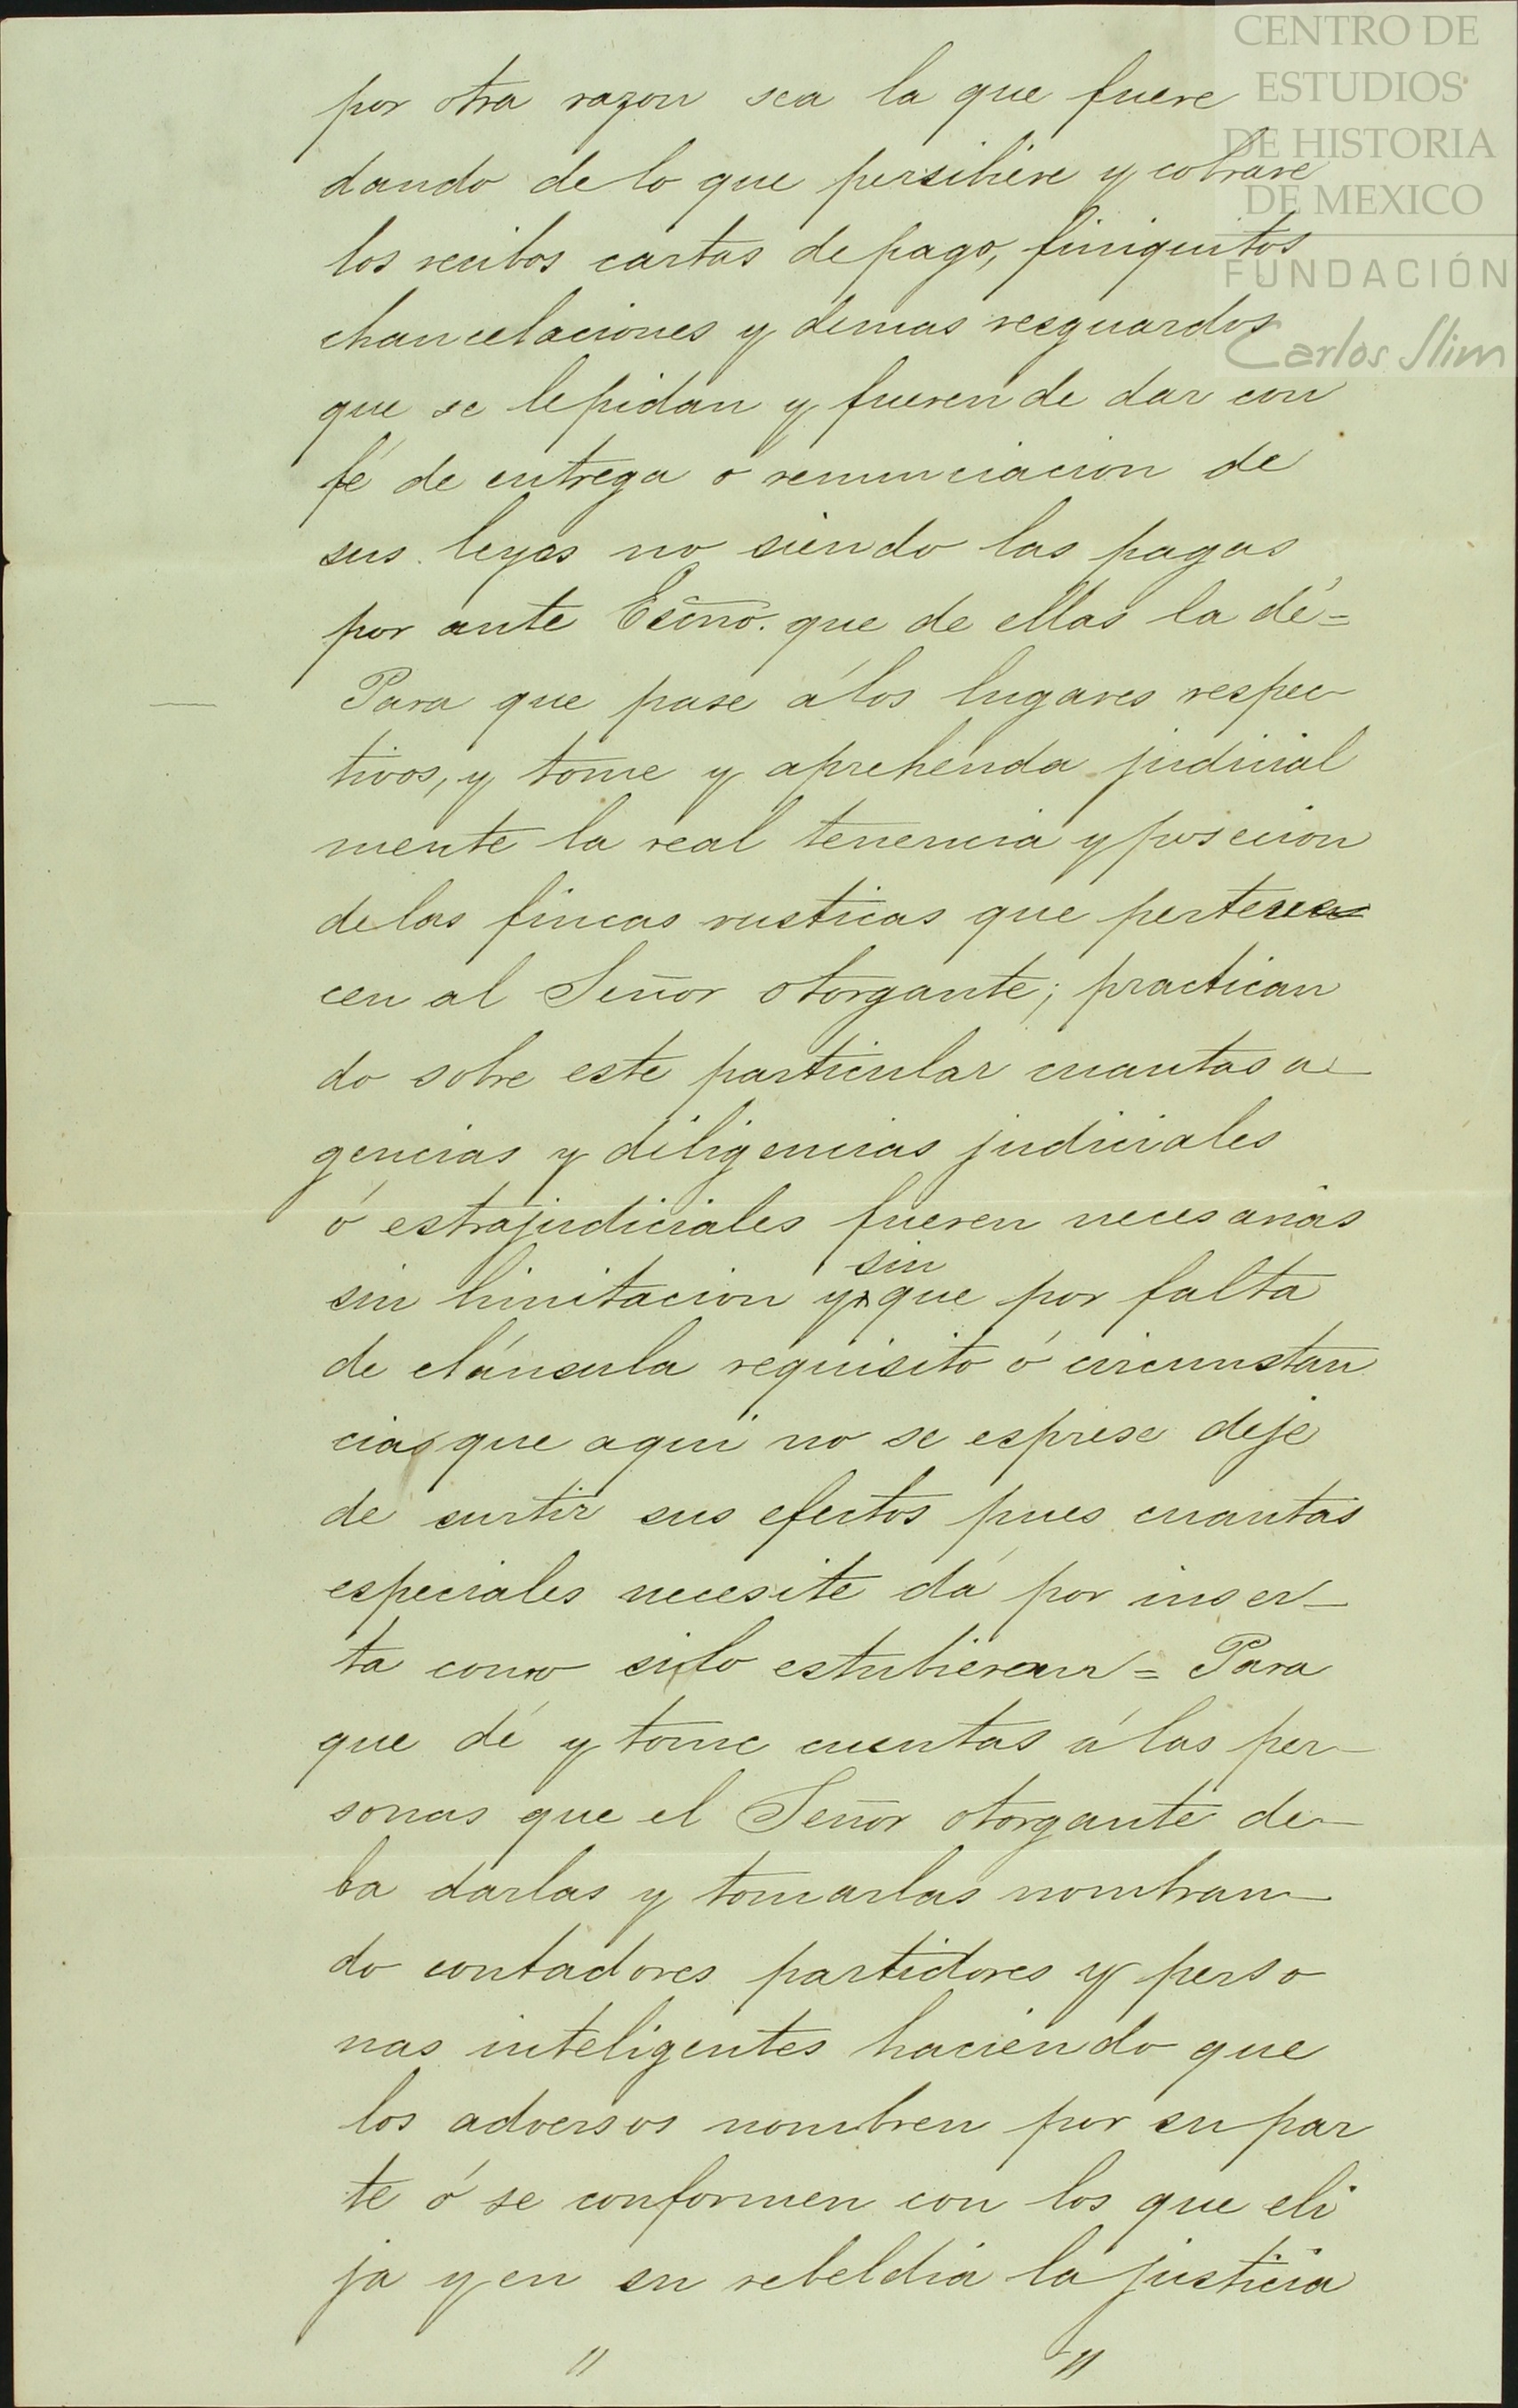 CENTRO DE
ESTUDIOS
DE HISTORIA
DE MEXICO
FUNDACIÓN
Carlos Slim
por otra razon sea la que fuere
dando de lo que persibiere y cobrare
los recibos cartas de pago, finiquitos
chancelaciones y demas resguardos
que se le pidan y fueren de dar con
fé de entrega o renunciacion de
sus leyes no siendo las pagas
por ante Escno. que de ellas la dé=
Para que pase á los lugares respec
tivos, y tome y aprehenda judicial
mente la real tenencia y posecion
de las fincas rusticas que pertene
cen al Señor otorgante; practican
do sobre este particular cuantas a-
gencias y diligencias judiciales
ó estrajudiciales fueren necesarias
sin limitacion y sin que por falta
de cláusula requisito ó circunstan
cias que aqui no se esprese deje
de surtir sus efectos pues cuantas
especiales necesite dá por inser-
ta como si lo estubieran = Para
que dé y tome cuentas á las per-
sonas que el Señor otorgante de-
ba darlas y tomarlas nombran-
do contadores partidores y perso
nas inteligentes haciendo que
los adversos nombren por su par
te ó se conformen con los que eli
ja y en su rebeldia la justicia
" "